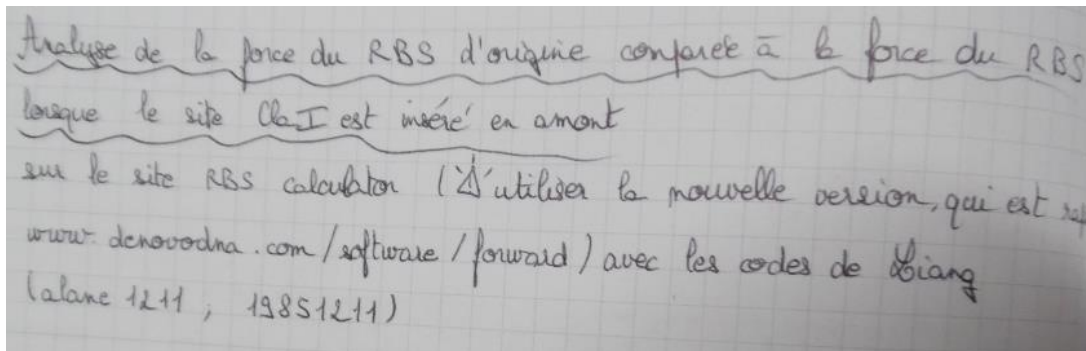 Analyse de la force du RBS d'origine comparée à la force du RBS
lorsque le site ClaI est inséré en amont
sur le site RBS calculator (⚠ utiliser la nouvelle version, qui est
www.denovodna.com/software/forward) avec les codes de Liang
(alane1211, 19851211)